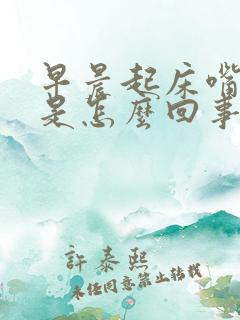 早晨起床嘴
是怎麼回事
許泰熙
未经同意禁止转载